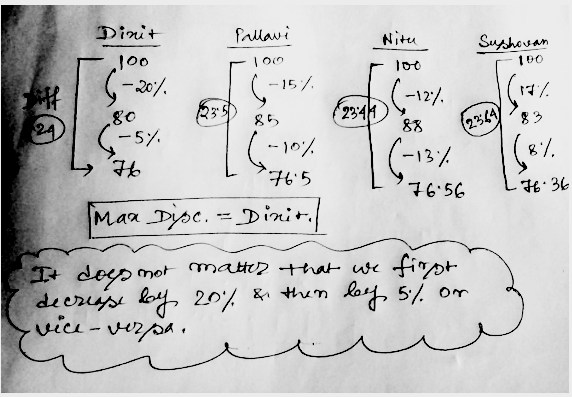 Dixit Pallavi Nitu Sushovan
100 100 100 100
-20% -15% -12% 17%
Diff
24 80 23.5 85 23.44 88 23.64 83
-5% -10% -13% 8%
76 76.5 76.56 76.36
Max Disc. = Dixit.
It does not matter that we first
decrease by 20% & then by 5% or
vice-versa.